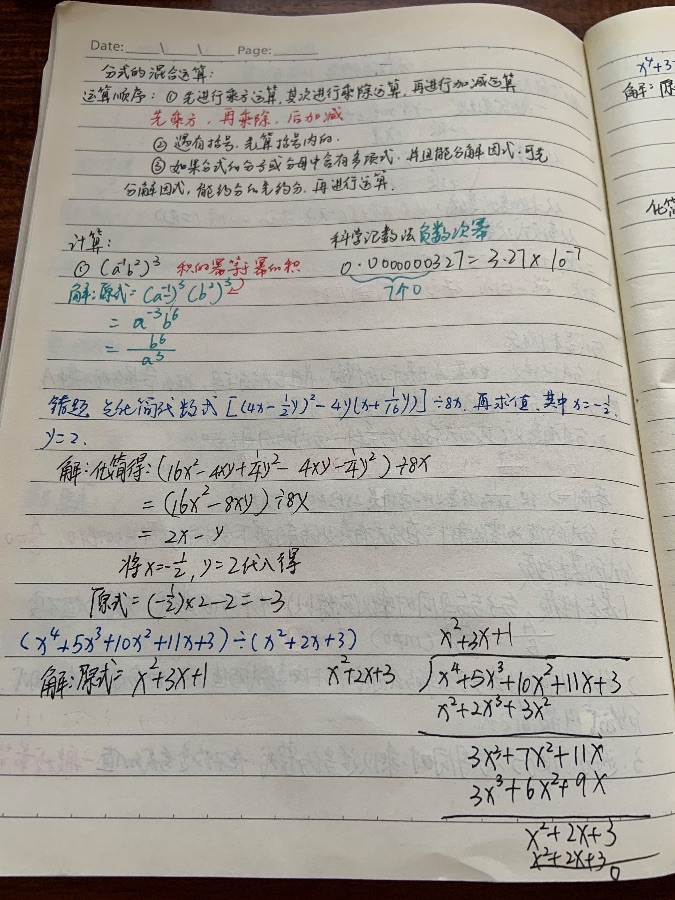 Date: \ \ Page:
分式的混合运算:
运算顺序: ① 先进行乘方运算,其次进行乘除运算,再进行加减运算
先乘方,再乘除,后加减
② 遇有括号,先算括号内的.
③ 如果分式的分子或分母中含有多项式,并且能分解因式,可先
分解因式,能约分的先约分,再进行运算.
计算:
① (a⁻¹b²)³ 积的幂等于幂的积
解:原式=(a⁻¹)³(b²)³
= a⁻³b⁶
= b⁶/a³
科学记数法 负数次幂
0.000000327=3.27×10⁻⁷
7个0
错题 先化简代数式[(4x-½y)²-4y(x+1/16y)]÷8x,再求值,其中x=-½,
y=2.
解:化简得:(16x²-4xy+¼y²-4xy-¼y²)÷8x
=(16x²-8xy)÷8x
= 2x-y
将x=-½,y=2代入得
原式=(-½)×2-2=-3
(x⁴+5x³+10x²+11x+3)÷(x²+2x+3)
解:原式=x²+3x+1
x²+3x+1
x²+2x+3 √x⁴+5x³+10x²+11x+3
x²+2x³+3x²
3x³+7x²+11x
3x³+6x²+9x
x²+2x+3
x²+2x+3
0
x⁴+3
解:原
化简